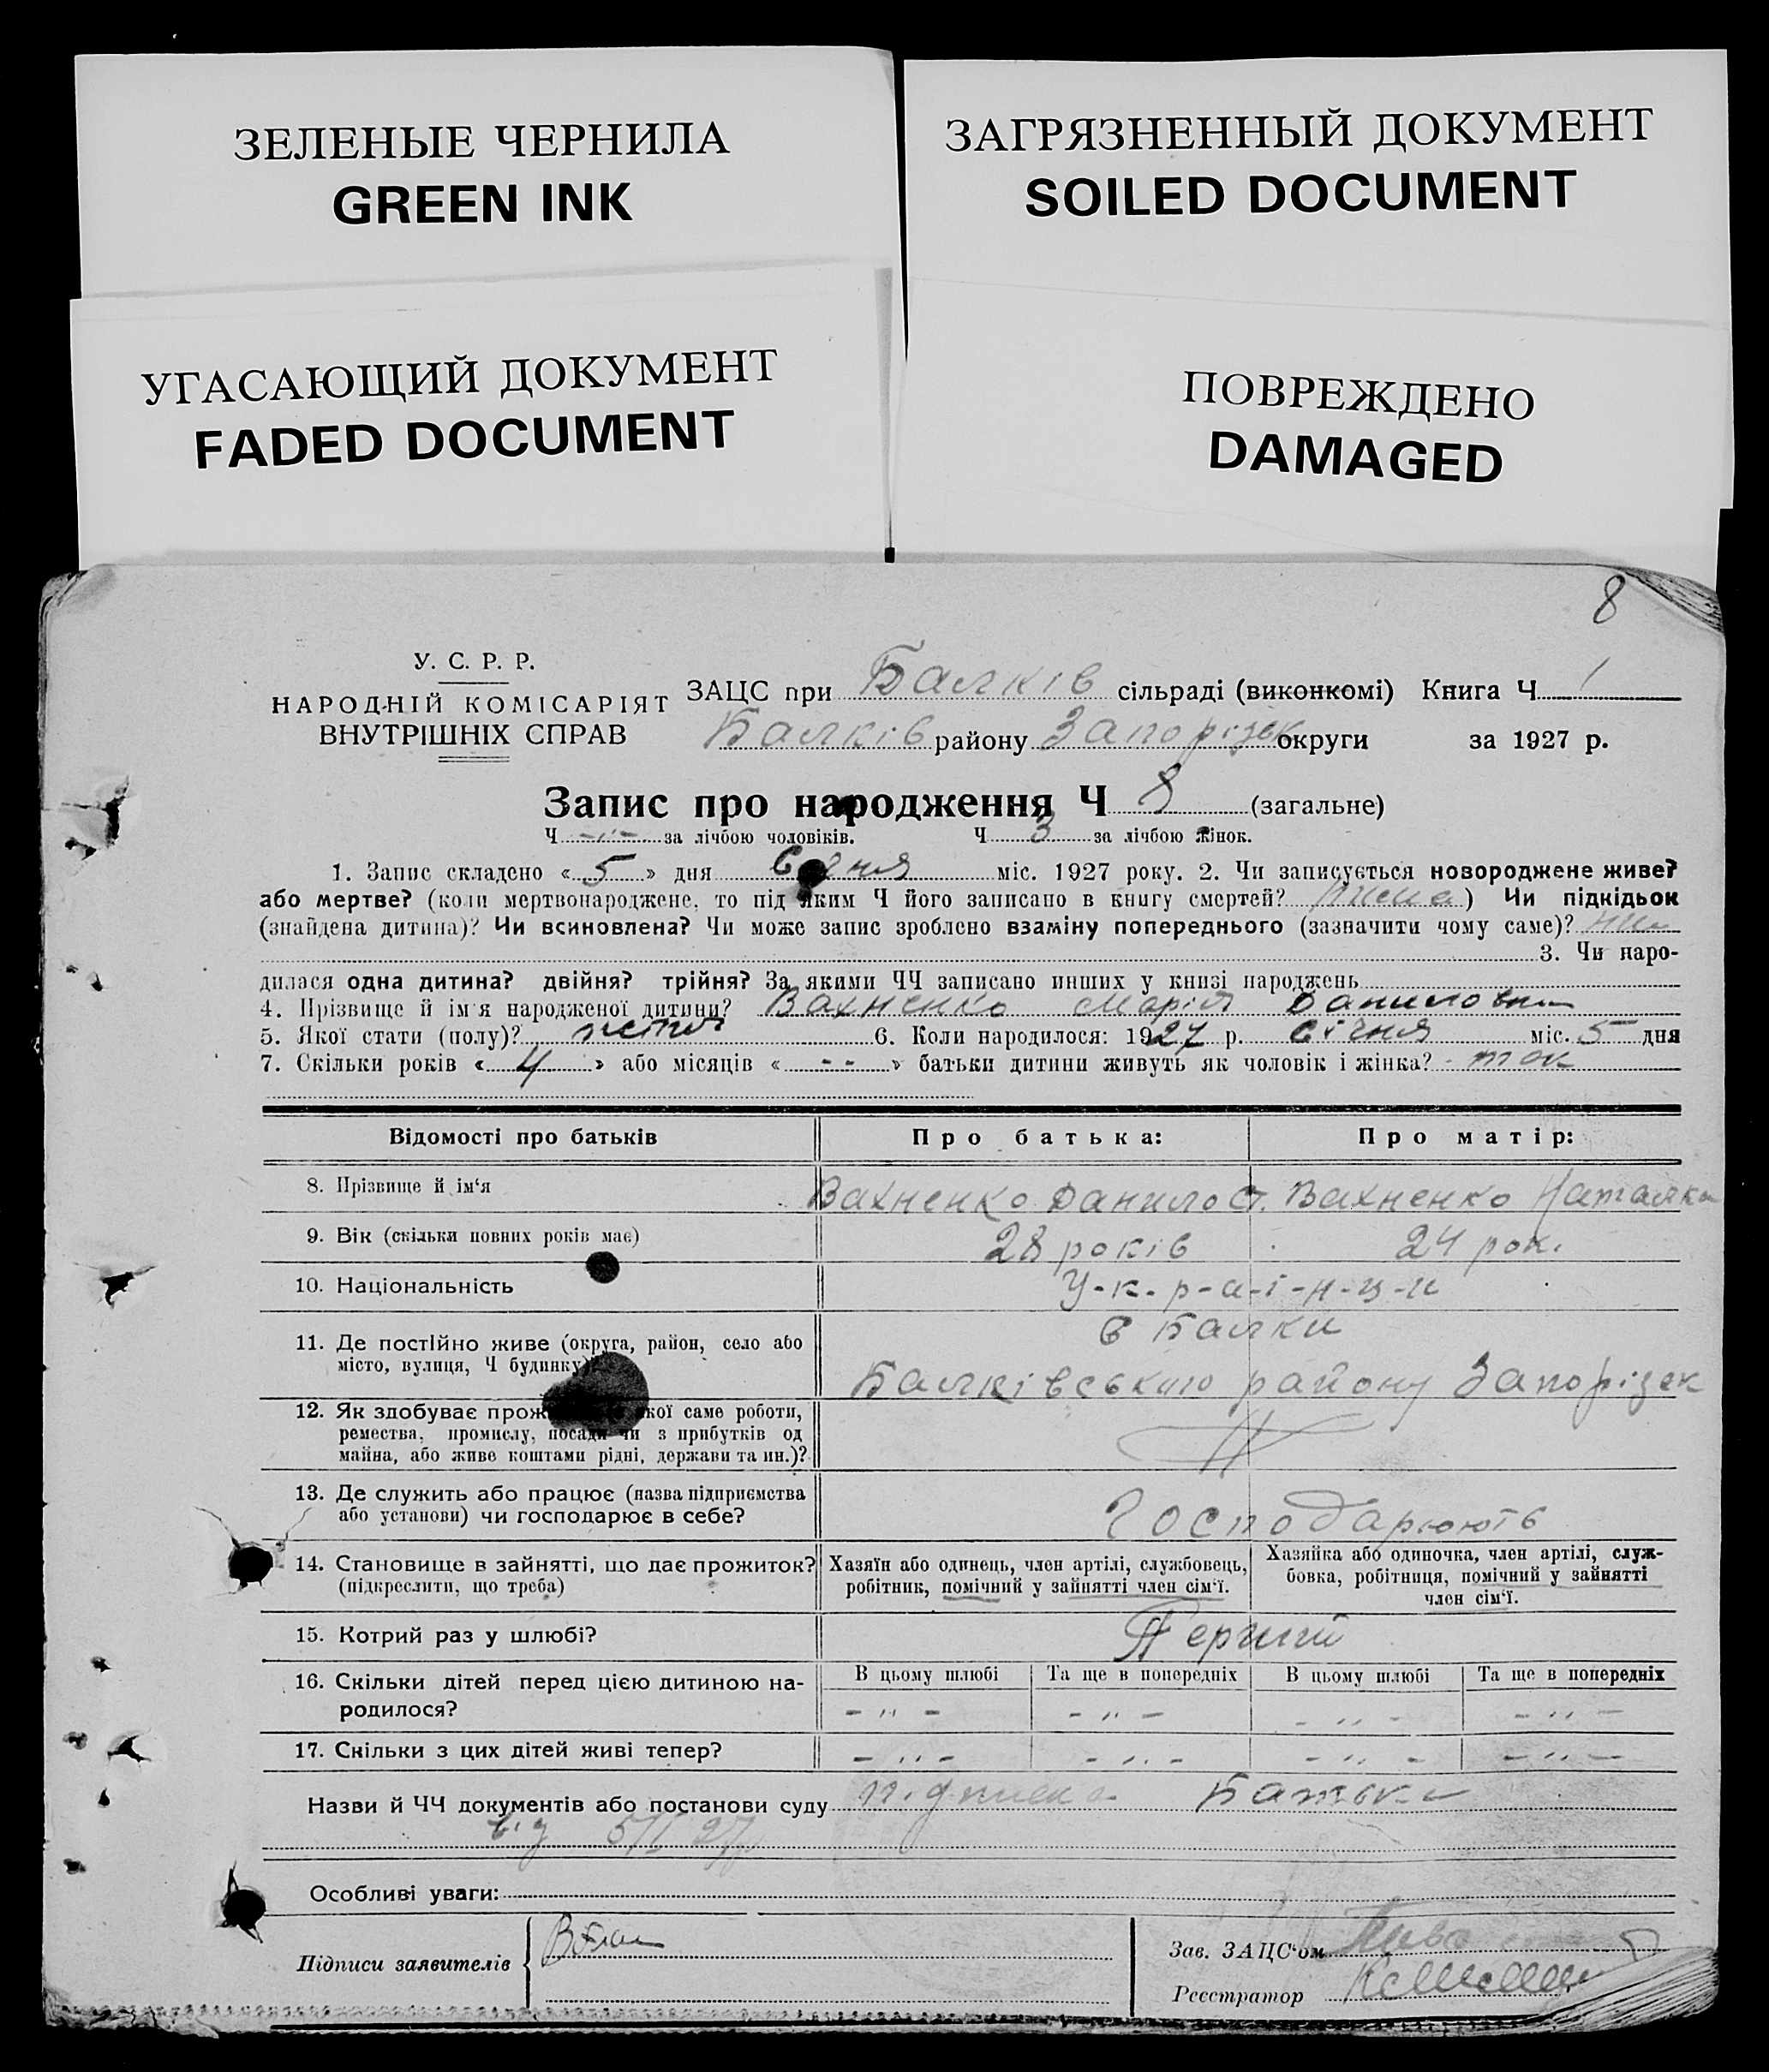 ЗЕЛЕНЫЕ ЧЕРНИЛА
GREEN INK
ЗАГРЯЗНЕННЫЙ ДОКУМЕНТ
SOILED DOCUMENT
УГАСАЮЩИЙ ДОКУМЕНТ
FADED DOCUMENT
ПОВРЕЖДЕНО
DAMAGED
8
У. С. Р. Р.
НАРОДНІЙ КОМІСАРІЯТ
ВНУТРІШНІХ СПРАВ
ЗАЦС при Балків сільраді (виконкомі) Книга Ч 1
Балків району Запорізьк округи за 1927 р.
Запис про народження Ч 8 (загальне)
Ч -"- за лічбою чоловіків. Ч 3 за лічбою жінок.
1. Запис складено « 5 » дня січня міс. 1927 року. 2. Чи записується новороджене живе?
або мертве? (коли мертвонароджене, то під яким Ч його записано в книгу смертей? ) Чи підкідьок
(знайдена дитина)? Чи всиновлена? Чи може запис зроблено взаміну попереднього (зазначити чому саме)?
3. Чи наро-
дилася одна дитина? двійня? трійня? За якими ЧЧ записано инших у книзі народжень
4. Прізвище й ім'я народженої дитини? Вахненко Марія Даниловна
5. Якої стати (полу)? 6. Коли народилося: 1927 р. січня міс. 5 дня
7. Скільки років « 4 » або місяців « - - » батьки дитини живуть як чоловік і жінка? - так
Відомості про батьків
Про батька:
Про матір:
8. Прізвище й ім'я Вахненко Данило Ст. Вахненко Наталка
9. Вік (скільки повних років має) 28 років 24 рок.
10. Національність У-к-р-а-ї-н-ц-и
11. Де постійно живе (округа, район, село або
місто, вулиця, Ч будинку)
в Балки
Балківського району Запорізьк
12. Як здобуває прож кої саме роботи,
ремества, промислу, посади чи з прибутків од
майна, або живе коштами рідні, держави та ин.)?
13. Де служить або працює (назва підприємства
або установи) чи господарює в себе?
Господарюють
14. Становище в зайнятті, що дає прожиток?
(підкреслити, що треба)
Хазяїн або одинець, член артілі, службовець,
робітник, помічний у зайнятті член сім'ї.
Хазяйка або одиночка, член артілі, служ-
бовка, робітниця, помічний у зайнятті
член сім'ї.
15. Котрий раз у шлюбі? Перший
16. Скільки дітей перед цією дитиною на-
родилося?
В цьому шлюбі
Та ще в попередніх
В цьому шлюбі
Та ще в попередніх
- " - - " - - " - - " -
17. Скільки з цих дітей живі тепер? - " - - " - - " - - " -
Назви й ЧЧ документів або постанови суду підписка Батьки
від 5/I 27р
Особливі уваги:
Підписи заявителів
Зав. ЗАЦС'ом
Реєстратор